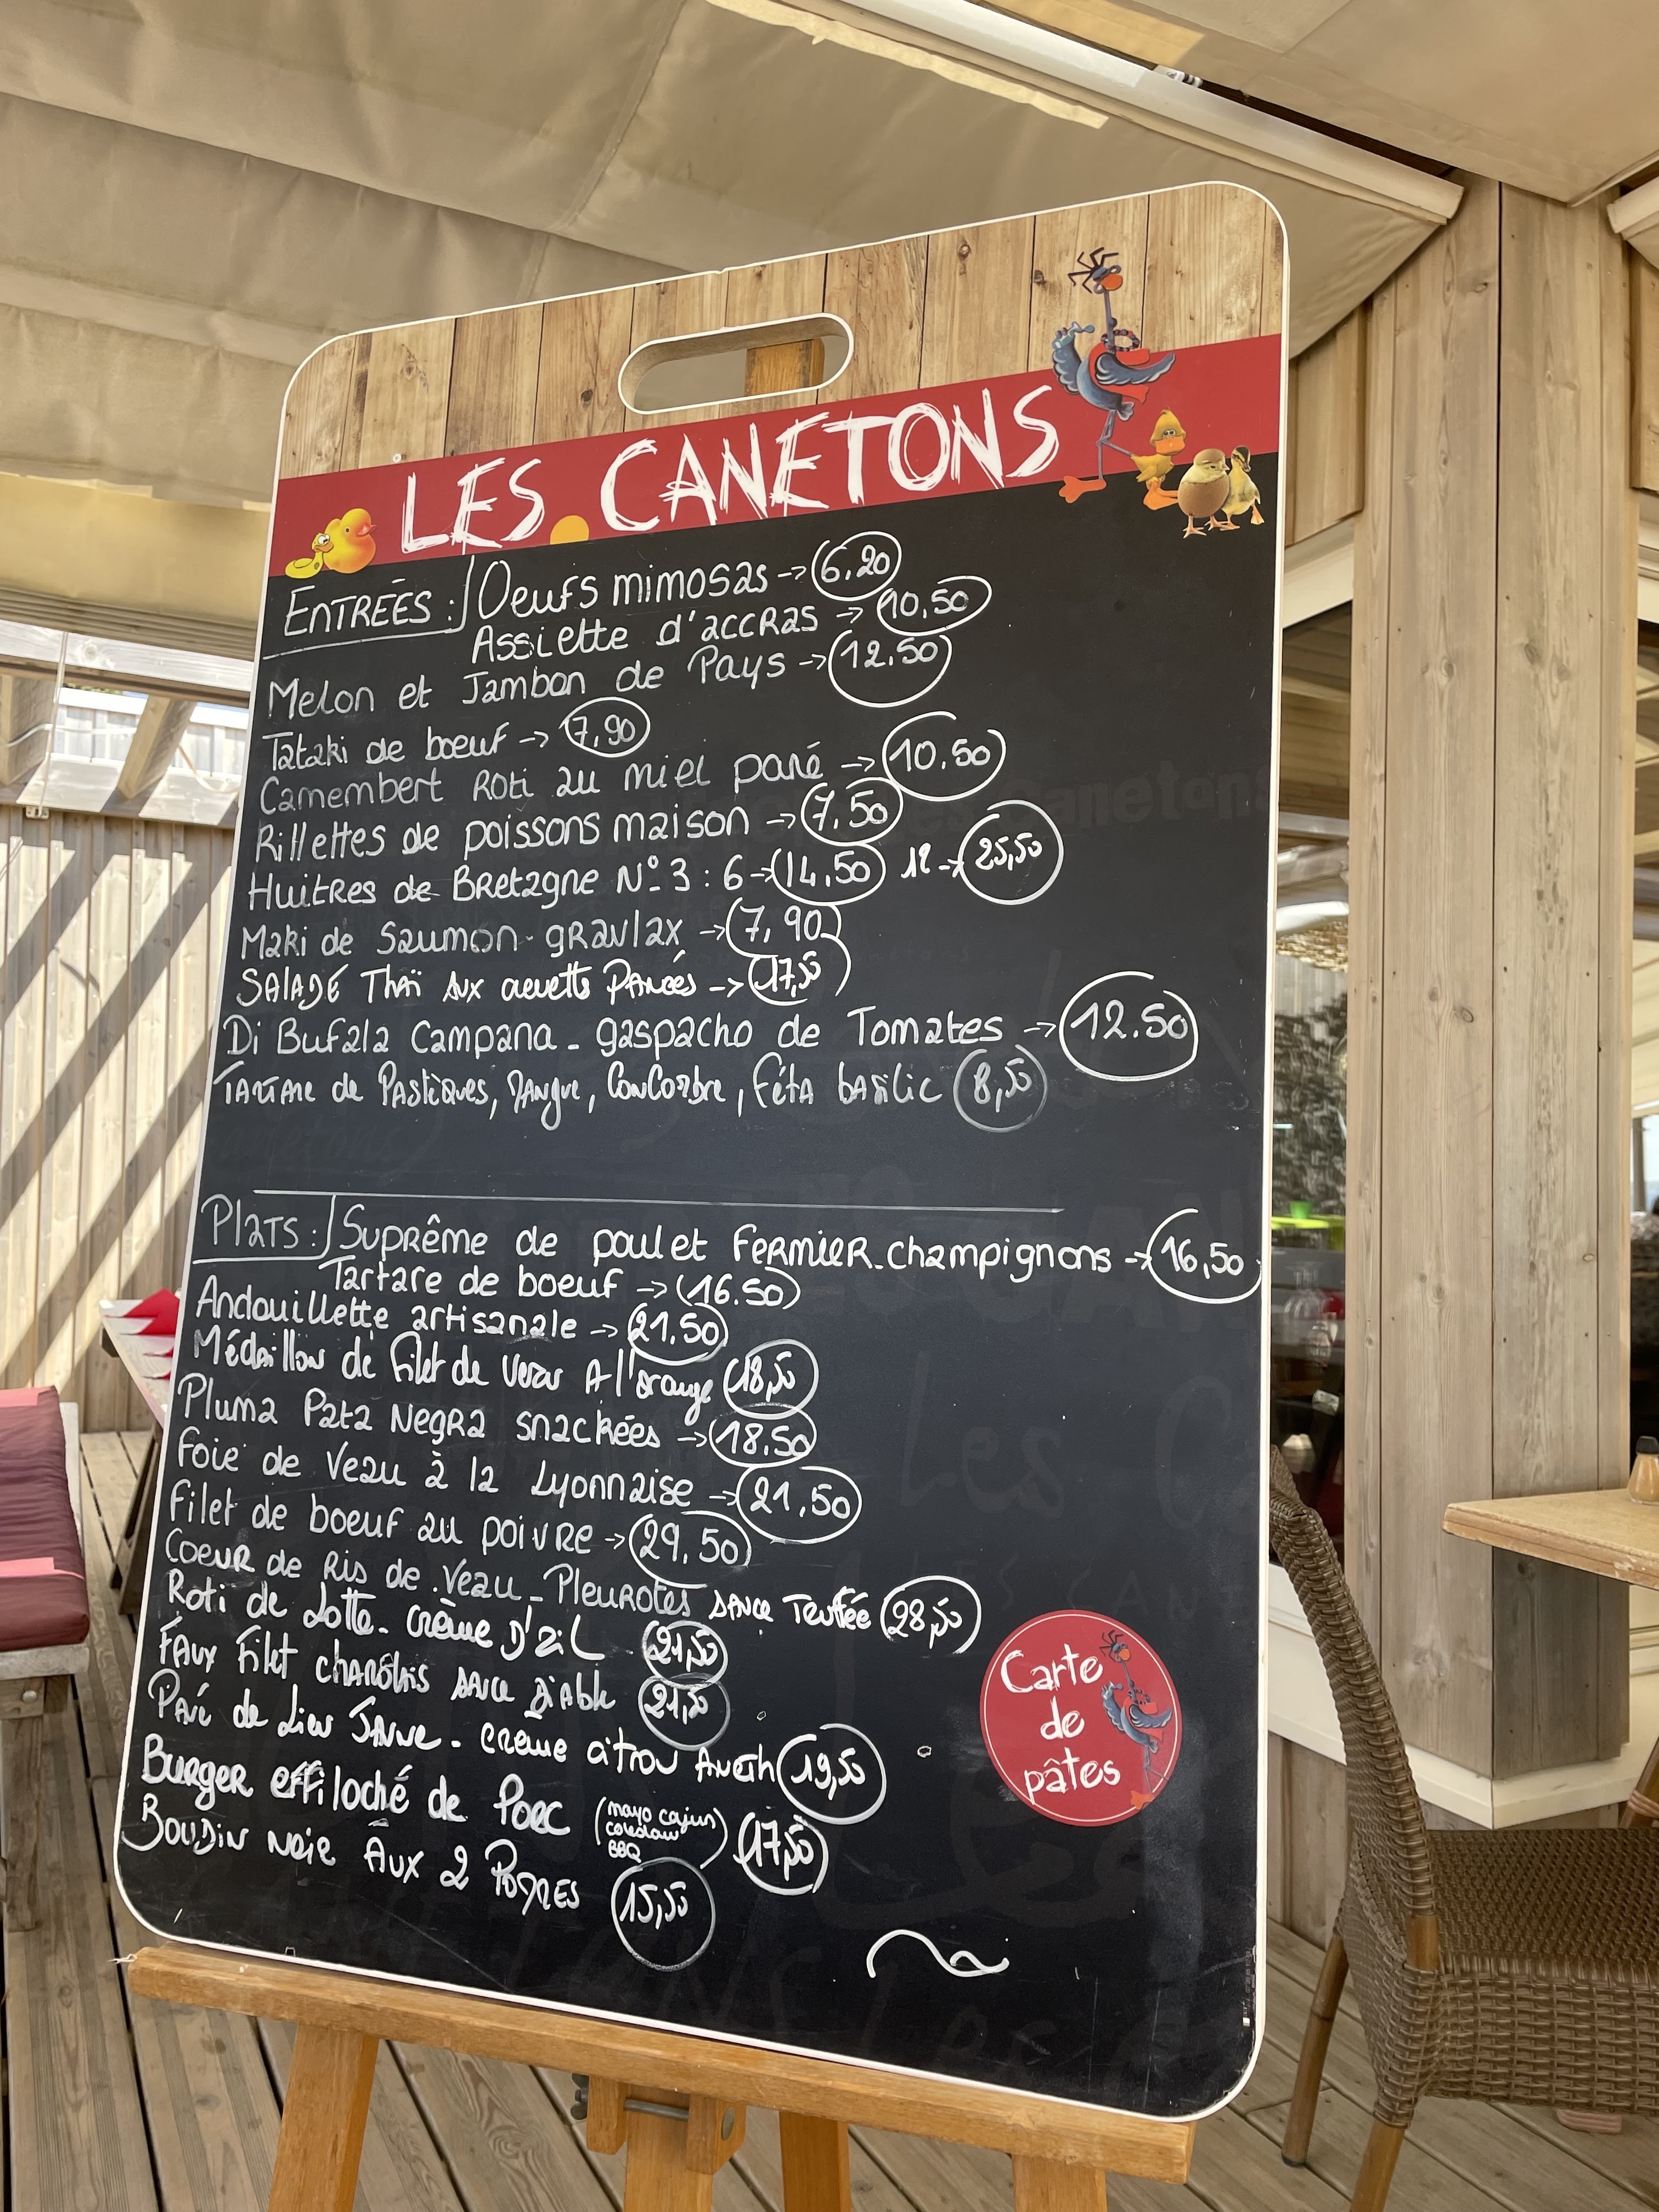 LES CANETONS
ENTRÉES : Oeufs mimosas -> 6,20
Assiette d'accras -> 10,50
Melon et Jambon de Pays -> 12.50
Tataki de boeuf -> 7,90
Camembert Roti au miel pané -> 10.50
Rillettes de poissons maison -> 7,50
Huitres de Bretagne N° 3 : 6 -> 14,50 12 -> 25,50
Maki de Saumon - gravlax -> 7,90
SALADE Thaï AUX crevettes PANées -> 17,50
Di Bufala Campana - gaspacho de Tomates -> 12.50
TARTARE de PASTèQUES, MANgue, ConCombre, féta basilic 8,50
Plats : Suprême de poulet FERMIER - champignons -> 16,50
Tartare de boeuf -> 16.50
Andouillette artisanale -> 21,50
Médaillon de filet de veau A l'orange 18,50
Pluma Pata Negra snackées -> 18.50
Foie de Veau à la Lyonnaise -> 21,50
Filet de boeuf au poivre -> 29,50
Coeur de Ris de Veau - Pleurotes sauce Truffée 28,50
Roti de Lotte - crème D'ail 21,50
FAUX Filet charolais sauce diable 21,50
Pavé de Lieu JAUNE - crème citron Aneth 19,50
Burger effiloché de PORC (mayo cajun coleslaw BBQ) 17,50
BOUDIN NOIR AUX 2 POMMES 15,50
Carte
de
pâtes